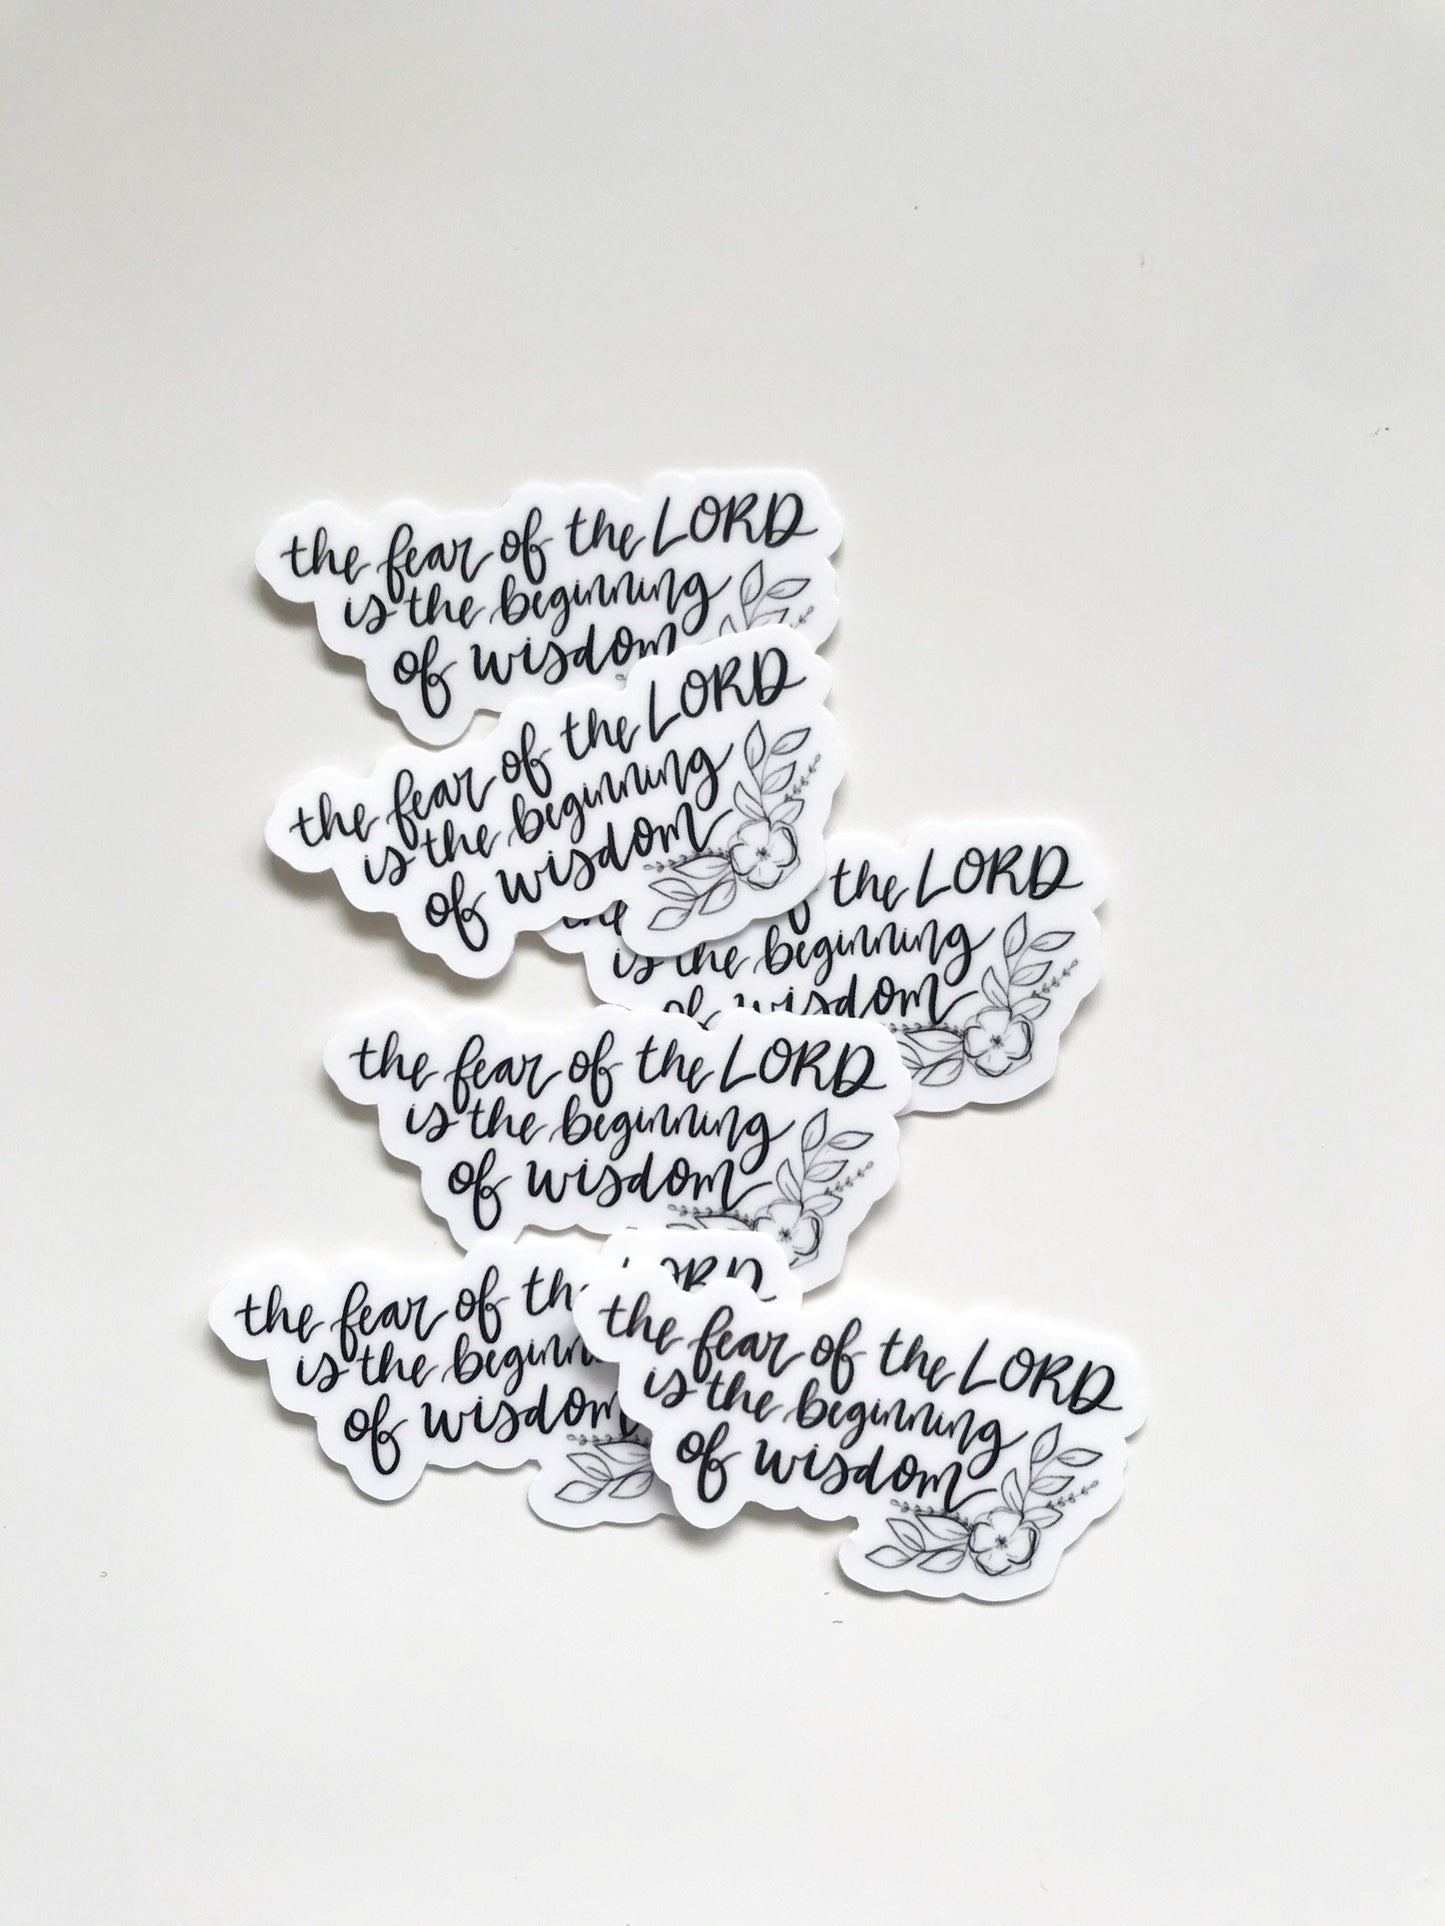 the fear of the LORD
is the beginning
of wisdom
the fear of the LORD
is the beginning
of wisdom
the LORD
is the beginning
of wisdom
the fear of the LORD
is the beginning
of wisdom
the fear of
is the
of wisdom
the fear of the LORD
is the beginning
of wisdom